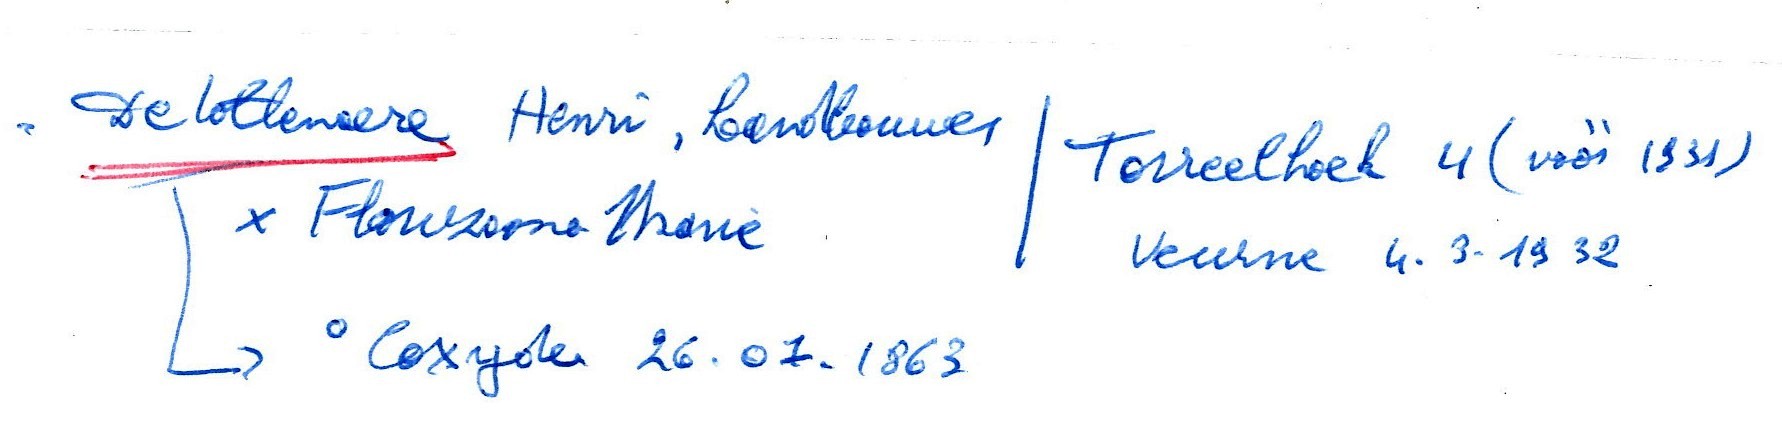 Delottenaere Henri, Landbouwer
x Florizoone Marie
° Coxyde 26.07.1863
Torreelhoek 4 (vóór 1931)
Veurne 4.3.1932